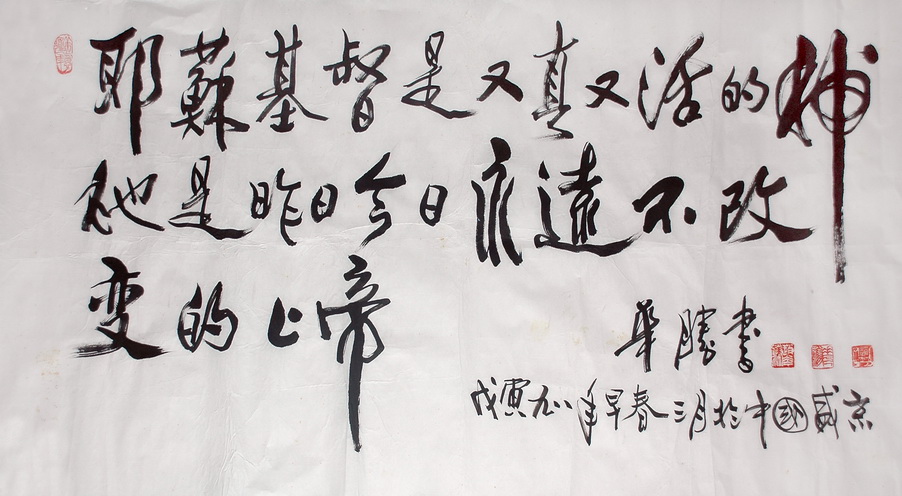 耶蘇基督是又真又活的神
祂是昨日今日永遠不改
变的上帝
華勝書
戊寅九八年早春三月於中國盛京